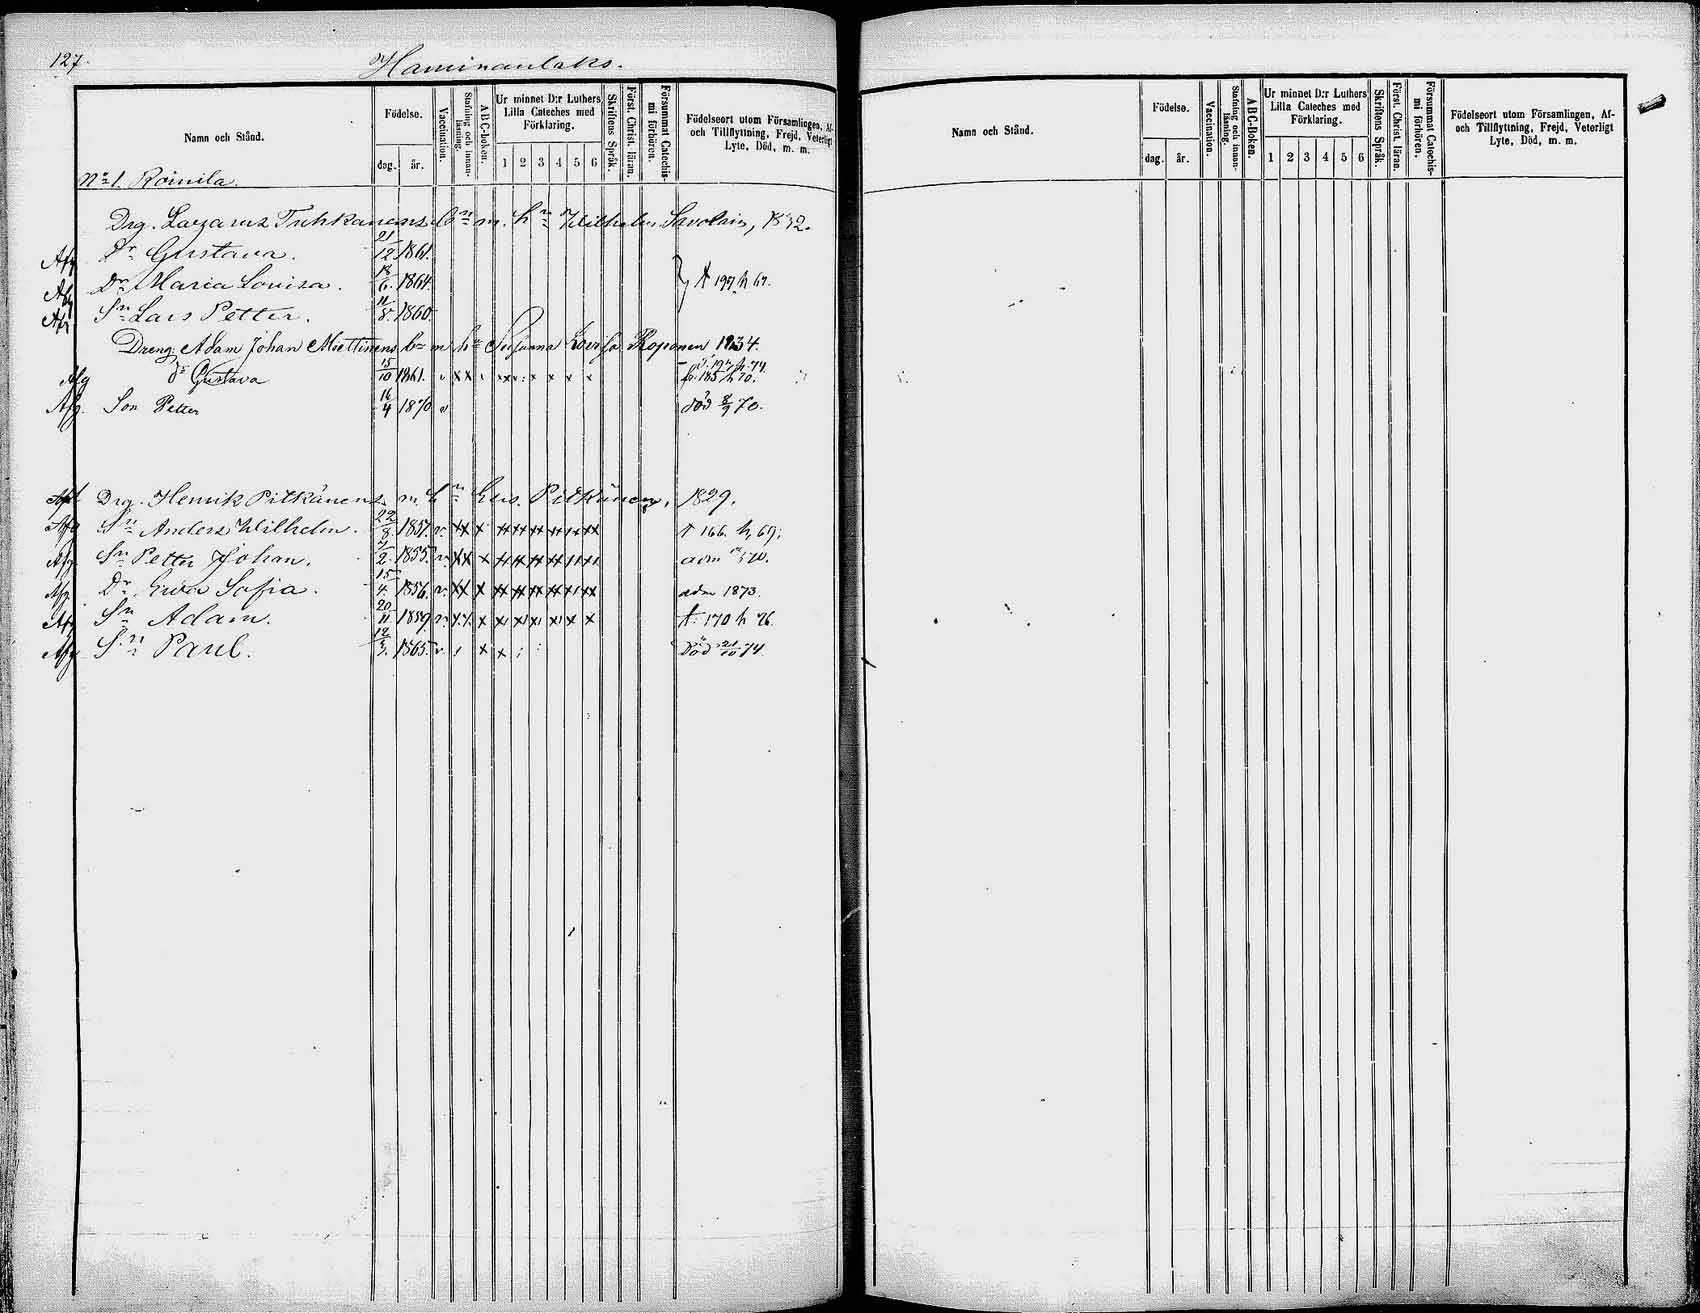 127.
Haminanlaks.
Namn och Stånd.
Födelse.
dag. år.
Vaccination.
Stafning och innanläsning.
ABC-boken.
Ur minnet D:r Luthers Lilla Cateches med Förklaring.
1 2 3 4 5 6
Skriftens Språk.
Först. Christ. läran.
Försummat Catechismi förhören.
Födelseort utom Församlingen, Af- och Tillflyttning, Frejd, Veterligt Lyte, Död, m. m.
Nº 1. Roinila.
Drg. Lazarus Tuhkanens bn m. hn Wilhelm. Savolain, 1832.
Afg Dr Gustava. 21/12 1861.
Afg Dr Maria Lovisa. 18/6. 1864. } † 197 h 67.
Afg Sn Lars Petter. 11/8. 1860
Dreng. Adam Johan Miettinens bn m hu Susanna Lovisa Roponen 1834.
Afg dr Gustava 15/10 1861. v xx x x x x x fr. 185 h 70.
Afg. Son Petter 16/4 1870 v död 8/9 70.
Afl Drg. Henrik Pitkänens m. hn Eus. Pitkänen, 1829.
Afg Sn Anders Wilhelm. 22/8. 1851. v. xx x xx xx xx xx xx xx † 166. h. 69.
Afg Sn Petter Johan. 7/2. 1855. v. xx x xx xx xx xx xx xx adm 1870.
Afg Dr Ewa Sofia. 15/4. 1856. v. xx x xx xx xx xx xx xx adm 1873.
Afg Sn Adam. 20/11. 1859. v. x.x. x x x x x x x †. 170 h 76.
Afg Sn Paul. 12/3. 1865. v. x x död 21/10 74.
Namn och Stånd.
Födelse.
dag. år.
Vaccination.
Stafning och innanläsning.
ABC-Boken.
Ur minnet D:r Luthers Lilla Cateches med Förklaring.
1 2 3 4 5 6
Skriftens Språk.
Först. Christ. läran.
Försummat Catechismi förhören.
Födelseort utom Församlingen, Af- och Tillflyttning, Frejd, Veterligt Lyte, Död, m. m.